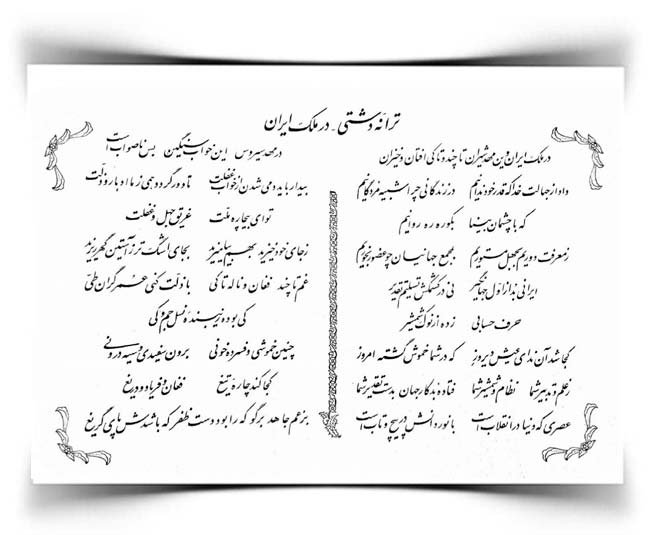 ترانه دشتی - در ملک ایران
در ملک ایران وین مهد شیران تا چند و تا کی افتان و خیزان
داد از جهالت خدا که قدر خود ندانیم در زندگانی چرا شبیه مردگانیم
که با چشمان بینا بکوره ره روانیم
ز معرفت دوریم بجهل مستوریم بجمع جهانیان چو عضو رنجوریم
ایرانی نه از اول جهانگیر نی در کشمکش تسلیم تقدیر
حرف حسابی زده از نوک شمشیر
کجا شد آن ندای عیش دیروز که در شما خموش گشته امروز
ز علم و تدبیر شما نظام و شمشیر شما فتاده بدگار جهان بدست تقدیر شما
عصری که دنیا در انقلاب است با نور دانش در پیچ و تاب است
در مهد سیروس این خواب سنگین بس ناصواب است
بیدار باید دمی شدن از خواب غفلت تا دور گردد همی ز ما ادبار و ذلت
تو ای بیچاره ملت غریق جهل و غفلت
ز جای خود خیزید بهم بیامیزید بجای اشک تر ز آستین گهر ریزید
غم تا چند فغان و ناله تا کی با ذلت کنی عمر گران طی
کی بوده زیبنده نسل جم کی
چنین خموشی و فسرده خونی برون سفیدی و سیه درونی
کجا کند چاره تیغ فغان و فریاد و دریغ
بزعم جاهد برگو که را بود دست ظفر که باشدش پای گریغ